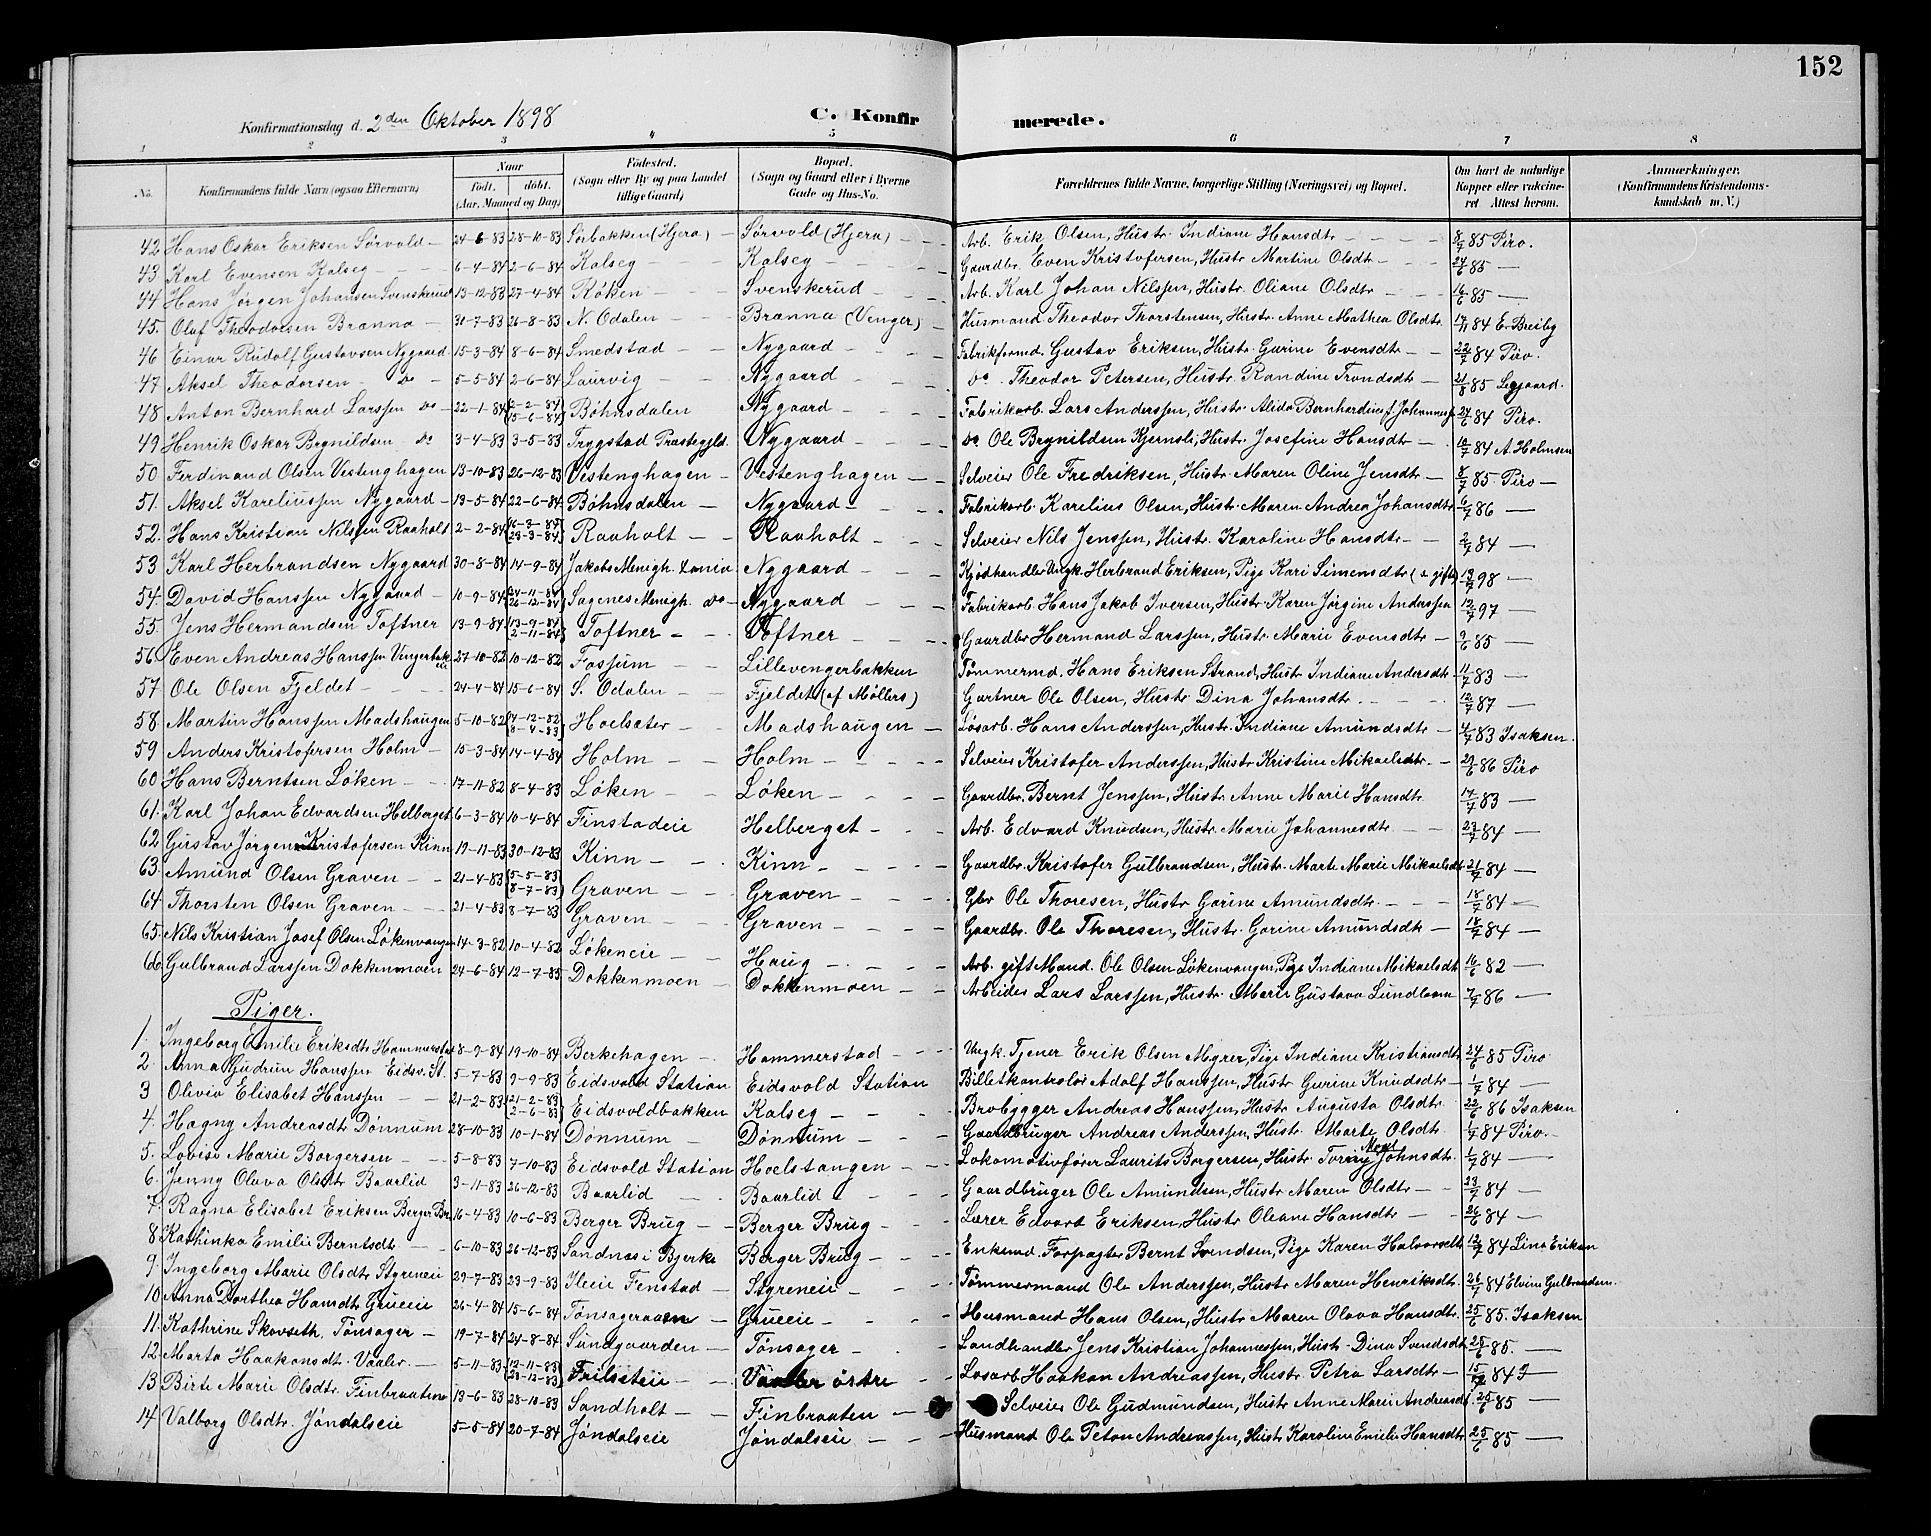 152
Konfirmationsdag d. 2den Oktober 1898 C. Konfirmerede.
1 2 3 4 5 6 7 8
No. Konfirmandens fulde Navn (ogsaa Efternavn) Naar født. døbt. (Aar, Maaned og Dag) Fødested. (Sogn eller By og paa Landet tillige Gaard) Bopæl. (Sogn og Gaard eller i Byerne Gade og Hus-No. Forældrenes fulde Navne, borgerlige Stilling (Næringsvei) og Bopæl. Om havt de naturlige Kopper eller vakcineret Attest herom. Anmærkninger. (Konfirmandens Kristendomskundskab m. V.)
42 Hans Oskar Eriksen Sørvold 24-6-83 28-10-83 Sørbakken (Hjera) Sørvold (Hjera) Arb. Erik Olsen, Hustr. Indiane Hansdtr 8/7 85 Piro.
43 Karl Evensen Kalseg 6-4-84 2-6-84 Kalseg Kalseg Gaardbr. Even Kristofersen, Hustr. Martine Olsdtr 24/6 85 —
44 Hans Jørgen Johansen Svenskerud 13-12-83 27-4-84 Røken Svenskerud Arb. Karl Johan Nilssen, Hustr. Oliane Olsdtr 16/6 85 —
45. Olaf Theodorsen Brænna 31-7-83 26-8-83 N. Odalen Brænna (Venger) Husmand Theodor Thorstensen, Hustr. Anne Mathea Olsdtr. 17/11 84 E. Breiby
46 Einar Rudolf Gustavsen Nygaard 15-3-84 8-6-84 Smedstad Nygaard Fabrikformd. Gustav Eriksen, Hustr. Gurine Evensdtr 22/7 84 Piro.
47 Aksel Theodorsen do 5-5-84 2-6-84 Laurvig Nygaard do. Theodor Petersen, Hustr. Randine Trondsdtr 21/8 85 Legaard.
48 Anton Bernhard Larssen do 22-1-84 (2-2-84 15-6-84) Bøhnsdalen Nygaard Fabrikarb. Lars Anderssen, Hustr. Alida Bernhardine f. Johanness 24/6 84 Piro.
49 Henrik Oskar Brynildsen do 3-4-83 3-5-83 Trygstad Præstegjld. Nygaard do Ole Brynildsen Kjernsli, Hustr. Josefine Hansdtr 10/7 84 A. Holmsen
50 Ferdinand Olsen Vestenghagen 13-10-83 26-12-83 Vestenghagen Vestenghagen Selveier Ole Fredriksen, Hustr. Maren Oline Jensdtr 8/7 85 Piro —
51. Aksel Kareliussen Nygaard 13-5-84 22-6-84 Bøhnsdalen Nygaard Fabrikarb. Karelius Olsen, Hustr. Maren Andrea Johansdtr 6/7 86 —
52. Hans Kristian Nilssen Raaholt 2-2-84 (16-3-84 23-3-84) Raaholt Raaholt Selveier Nils Jenssen, Hustr. Karoline Hansdtr 2/7 84 —
53 Karl Herbrandsen Nygaard 30-8-84 14-9-84 Jakobs Menigh. Xania Nygaard Kjødhandler Ungk. Herbrand Eriksen, Pige Kari Simensdtr (u gift) 13/7 98 —
54. David Hanssen Nygaard 10-9-84 (24-11-84 26-12-84) Sagenes Menigh. do Nygaard Fabrikarb. Hans Jakob Iversen, Hustr. Karen Jørgine Anderssen 12/7 97 —
55. Jens Hermandsen Toftner 13-9-84 (13-9-84 2-11-84) Toftner Toftner Gaardbr Hermand Larssen, Hustr. Marie Evensdtr 9/6 85 —
56 Even Andreas Hanssen Vingerbak 27-10-82 10-12-82 Fossum Lillevengerbakken Tømmermd. Hans Eriksen Strand, Hustr. Indiane Andersdtr 11/7 83 —
57 Ole Olsen Fjeldet 24-4-84 15-6-84 S. Odalen Fjeldet (af Møllers) Gartner Ole Olsen, Hustr. Dina Johansdtr 12/7 87 —
58 Martin Hanssen Madshaugen 5-10-82 (14-12-82 8-4-83) Hoelsæter Madshaugen Løsarb. Hans Anderssen, Hustr. Indiane Amundsdtr 4/7 83 Isaksen.
59 Anders Kristofersen Holm 15-3-84 14-4-84 Holm Holm Selveier Kristofer Anderssen, Hustr. Kristine Mikaelsdtr. 29/6 86 Piro
60 Hans Berntsen Løken 17-11-82 8-4-83 Løken Løken Gaardbr. Bernt Jenssen, Hustr. Anne Marie Hansdtr 14/7 83 —
61. Karl Johan Edvardsen Helberget 6-3-84 10-4-84 Finstadeie Helberget Arb. Edvard Knudsen, Hustr. Marie Johannesdtr 23/7 84 —
62 Gustav Jørgen Kristofersen Kinn 19-11-83 30-12-83 Kinn Kinn Gaardbr. Kristofer Gulbrandsen, Hustr. Marte Marie Mikaelsdt. 21/7 84 —
63. Amund Olsen Graven 21-4-83 (5-5-83 8-7-83) Graven Graven Gbr Ole Thoresen, Hustr Gorine Amundsdtr. 18/7 84 —
64. Thorsten Olsen Graven 21-4-83 8-7-83 Graven Graven Gaardbr. Ole Thoresen, Hustr. Gorine Amundsdtr 18/7 84 —
65. Nils Kristian Josef Olsen Løkenvangen 14-3-82 10-4-82 Løkeneie Haug Arb. gift Mand. Ole Olsen Løkenvangen, Pige Indiane Mikaelsdt 16/6 82 —
66. Gulbrand Larssen Dokkenmoen 24-6-84 12-7-85 Dokkenmoen Dokkenmoen Arbeider Lars Larssen, Hustr. Marie Gustava Lundbom 7/7 86 —
Piger.
1. Ingeborg Emilie Eriksdtr Hammerstad 8-9-84 19-10-84 Berkehagen Hammerstad Ungk. Tjener Erik Olsen Myrer, Pige Indiane Kristiansdtr 24/6 85 Piro
2. Anna Gudrun Hanssen Eidsv. St. 5-7-83 9-9-83 Eidsvold Station Eidsvold Station Billetkontrolør Adolf Hanssen, Hustr Gurine Knudsdtr 1/7 84 —
3 Olivia Elisabet Hanssen 21-2-83 (21-2-83 2-6-83) Eidsvoldbakken Kalseg Brobygger Andreas Hanssen, Hustr Augusta Olsdtr. 22/6 86 Isaksen
4. Hagny Andreasdtr Dønnum 28-10-83 10-1-84 Dønnum Dønnum Gaardbruger Andreas Anderssen, Hustr. Marte Olsdt. 1/7 84 Piro.
5. Lovise Marie Borgersen 5-8-83 7-10-83 Eidsvold Station Hoelstangen Lokomotivfører Laurits Borgersen, Hustr. Torine Marie Johnsdt. 1/7 84 —
6. Jenny Olava Olsdtr Baarlid 3-11-83 26-12-83 Baarlid Baarlid Gaardbruger Ole Amundsen, Hustr. Maren Olsdtr 23/7 84 —
7. Ragna Elisabet Eriksen Berger Br. 16-4-83 10-6-83 Berger Brug Berger Brug Lærer Edvart Eriksen, Hustr. Oleane Hansdtr 26/6 84 —
8 Kathinka Emilie Berntsdt 6-10-83 26-12-83 Sandnæs i Bjerke Berger Brug Enkemd. Forpagter Bernt Svendsen, Pige Karen Halvorsdt 12/7 84 Lina Eriksen
9. Ingeborg Marie Olsdtr. Styreneie 29-7-83 23-9-83 Ileie Fenstad Styreneie Tømmermand Ole Anderssen, Hustr. Maren Henriksdt. 26/7 84 Elvine Gulbrandsen.
10. Anna Dorthea Hansdtr Grueeie 26-4-84 15-6-84 Tønsageraaen Grueeie Husmand Hans Olsen, Hustr. Maren Olava Hansdtr. 25/6 85. Isaksen
11. Kathrine Skovseth, Tønsager 19-7-84 24-8-84 Sundgaarden Tønsager Landhandler Jens Kristian Johannessen, Hustr. Dina Svendsdt 25/6 85. —
12. Marta Haakonsdt. Vaaler. 5-11-83 (12-11-83 23-12-83) Frilseteie Vaaler østre Løsarb. Haakon Andreassen, Hustr. Petra Larsdtr 15/7 84
13 Birte Marie Olsdtr. Finbraaten 13-6-83 28-10-83 Sandholt Finbraaten Selveier Ole Gudmundsen, Hustr. Anne Marie Andreasdt. 25/6 85 —
14 Valborg Olsdtr. Jøndalseie 5-5-84 20-7-84 Jøndalseie Jøndalseie Husmand Ole Peter Andreassen, Hustr. Karoline Emilie Hansdtr 25/6 85 —